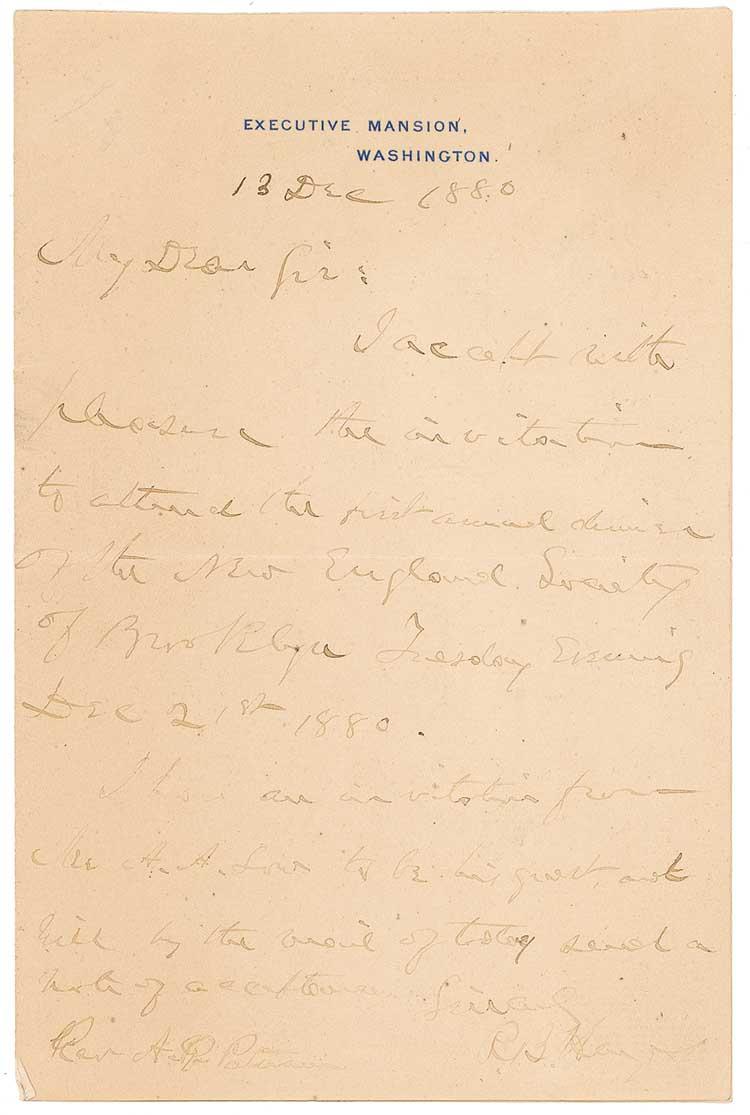 EXECUTIVE MANSION,
WASHINGTON.
13 Dec 1880
My Dear Sir:
I accept with
pleasure the invitation
to attend the first annual dinner
of the New England Society
of Brooklyn Tuesday Evening
Dec 21st 1880.
I have an invitation from
Mr A. A. Low to be his guest, and
will by the mail of today send a
note of acceptance Sincerely
R. B. Hayes
Rev A. P. Putnam